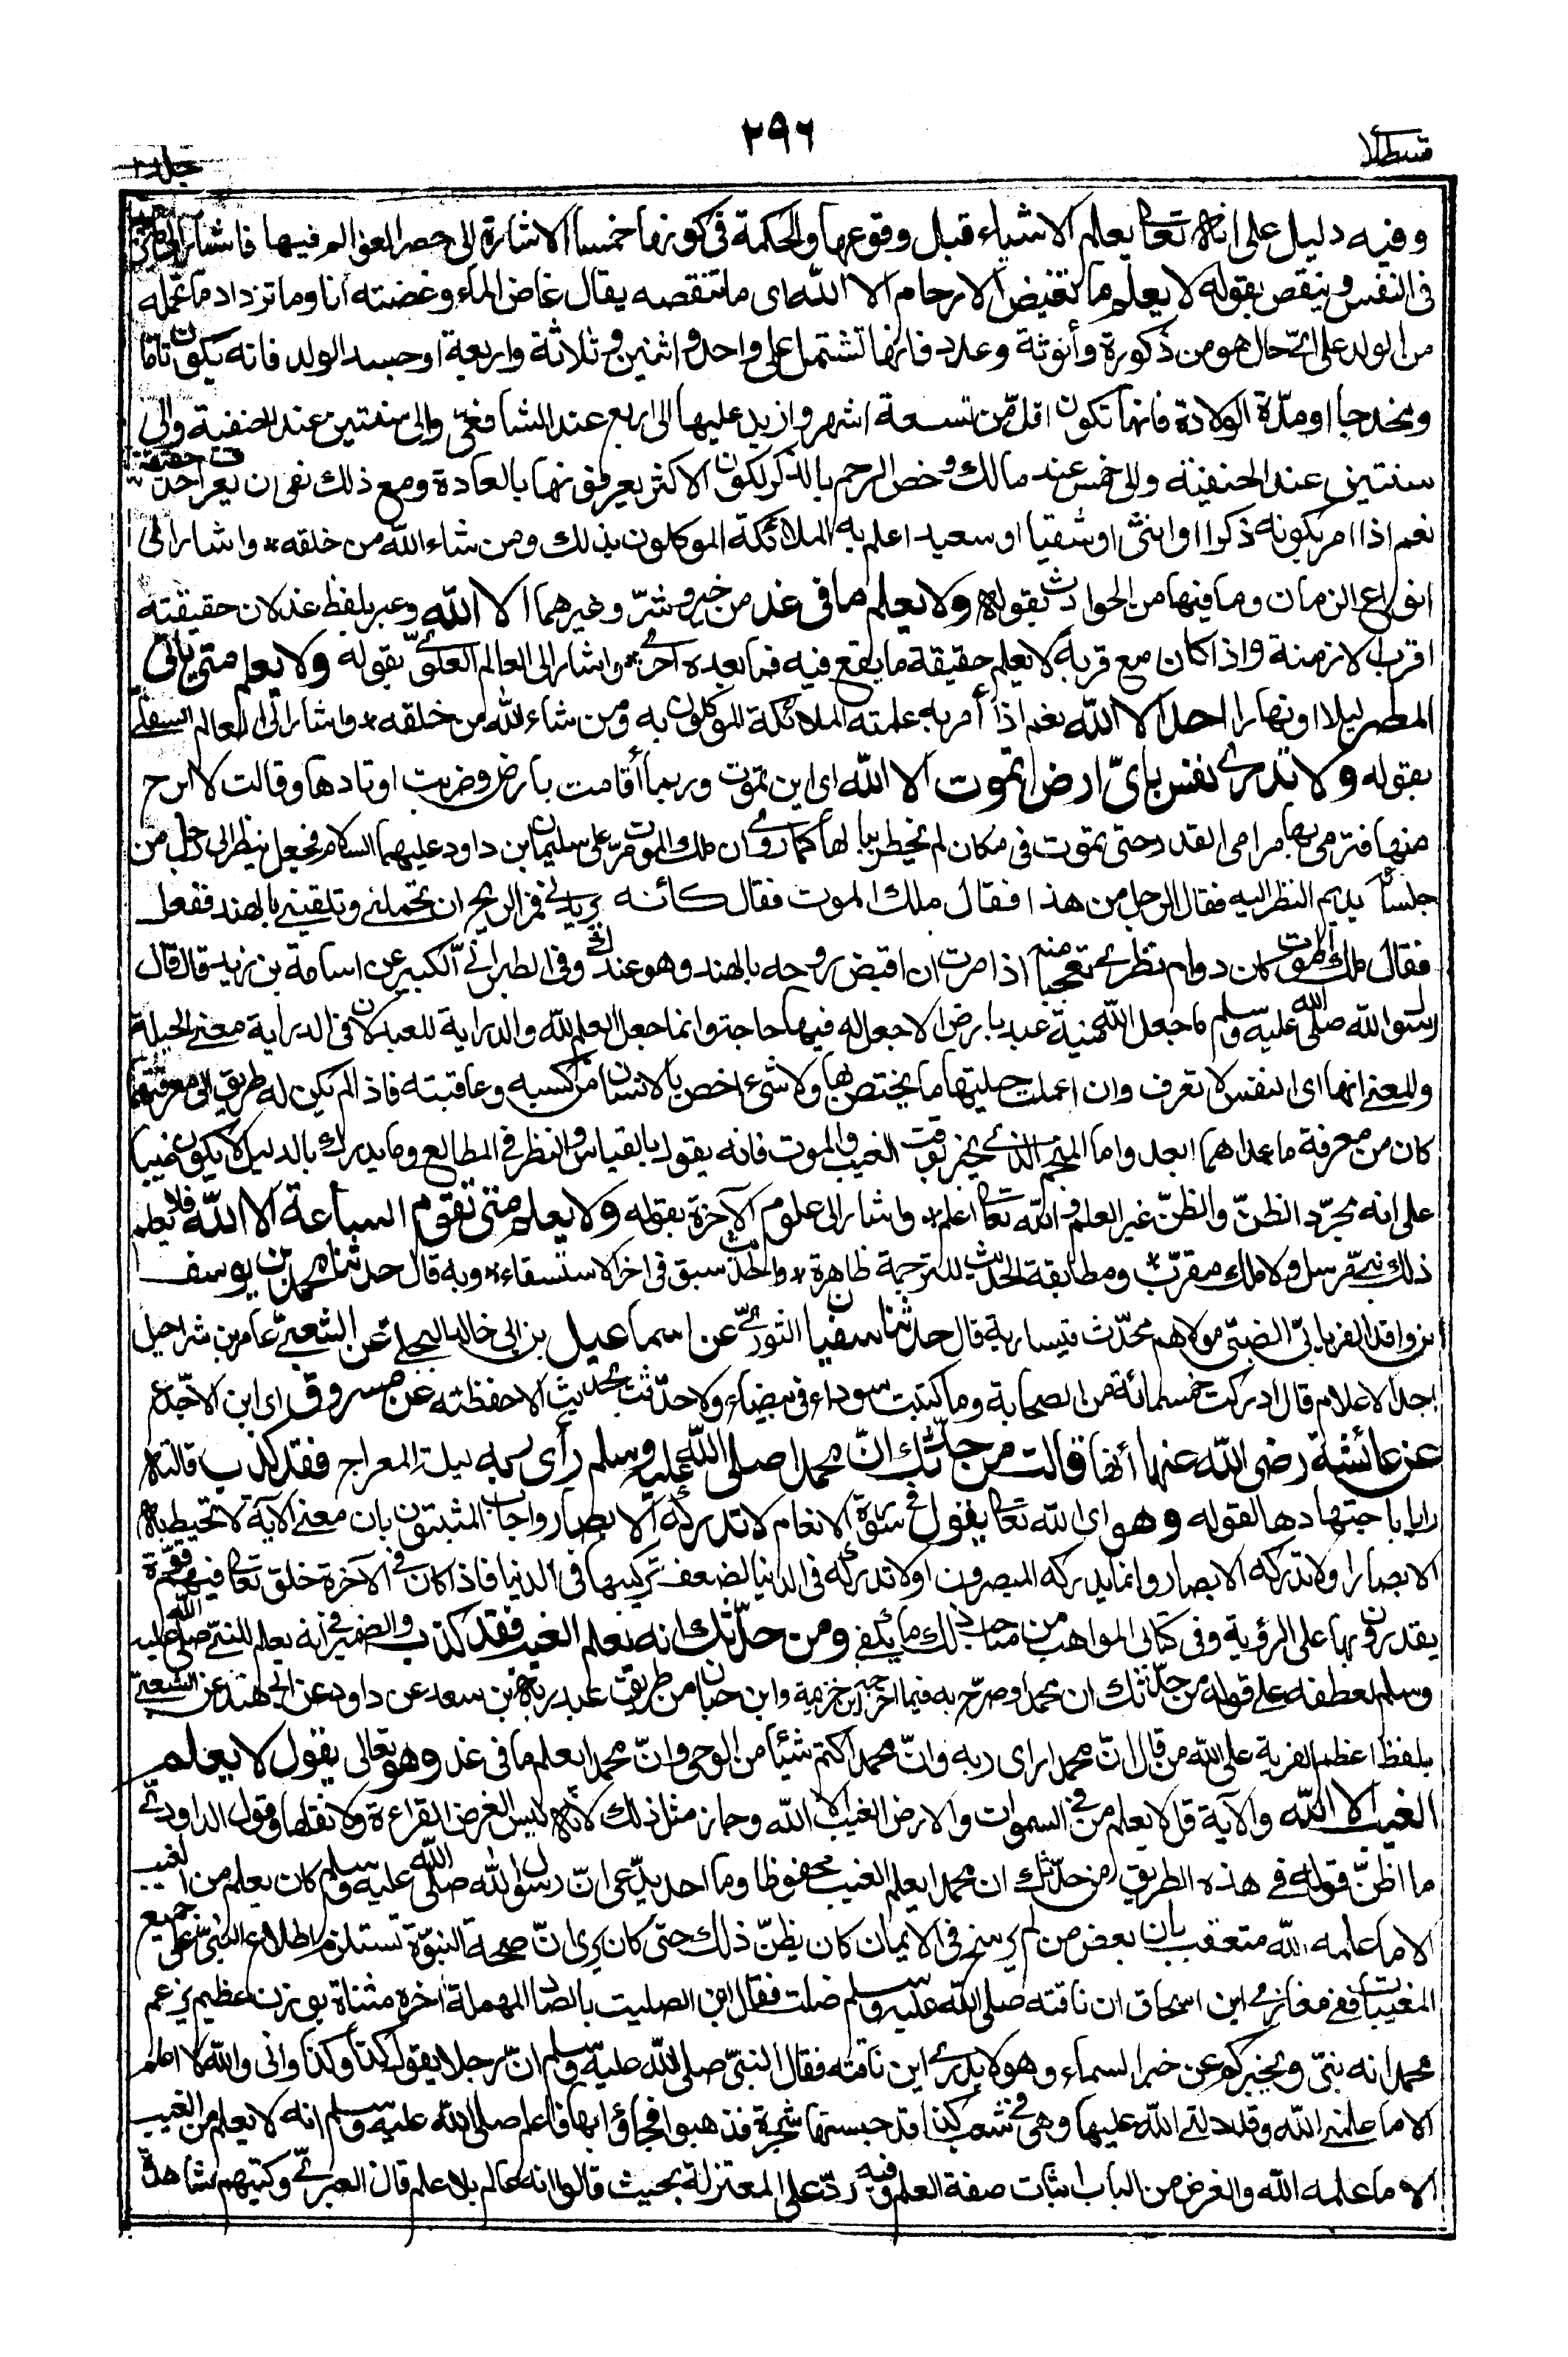 ٢٩٦
قسطلا
جلد
وفيه دليل على انه تعالى يعلم الاشياء قبل وقوعها والحكمة في كونها خمسا الاشارة الى حصر العوالم فيها فاشار الى ما
في النفس وينقص بقوله لا يعلم ما تغيض الارحام الا الله اى ما تنقصه يقال غاض الماء وغضته أنا وما تزداد ما تحمله
من الولد على اىّ حال هو من ذكورة وأنوثة وعدد فانها تشتمل على واحد واثنين وثلاثة واربعة او جسد الولد فانه يكون تامّا
ومخدجا او مدّة الولادة فانها تكون اقل من تسعة اشهر وازيد عليها الى اربع عند الشافعىّ والى سنتين عند الحنفية والى
سنتين عند الحنفية والى خمس عند مالك وخص الرحم بالذكر لكون الاكثر يعرفونها بالعادة ومع ذلك نفى ان يعرف احد حقيقتها
نعم اذا امر بكونه ذكرا او انثى او شقيا او سعيدا علم به الملائكة الموكلون بذلك ومن شاء الله من خلقه * واشار الى
انواع الزمان وما فيها من الحوادث بقوله ولا يعلم ما في غد من خير وشرّ وغيرهما الا الله وعبر بلفظ غد لان حقيقته
اقرب الازمنة واذا كان مع قربه لا يعلم حقيقة ما يقع فيه فما بعده احرى * واشار الى العالم العلوىّ بقوله ولا يعلم متى يأتى
المطر ليلا او نهارا احد الا الله نعم اذا أمر به علمته الملائكة الموكلون به ومن شاء الله من خلقه * واشار الى العالم السفلىّ
بقوله ولا تدرى نفس باىّ ارض تموت الا الله اى اين تموت وربما أقامت بارض وضربت اوتادها وقالت لا ابرح
منها فترمى بها مرامى القدر حتى تموت في مكان لم يخطر ببالها كما روى ان ملك الموت مرّ على سليمان بن داود عليهما السلام فجعل ينظر الى رجل من
جلسائه يديم النظر اليه فقال الرجل من هذا فقال ملك الموت فقال كأنه يريدنى فمر الريح ان تحملنى وتلقينى بالهند ففعل
فقال ملك الموت كان دوام نظرى تعجبا منه اذ امرت ان اقبض روحه بالهند وهو عندك وفي الطبرانىّ الكبير عن اسامة بن زيد قال قال
رسول الله صلى الله عليه وسلم ما جعل الله منية عبد بارض الا جعل له فيها حاجة وانما جعل العلم لله والدراية للعبد لان في الدراية معنى الحيلة
والمعنى انها اى النفس لا تعرف وان اعملت حيلتها ما يختص بها ولا شىء اخص بالانسان من كسبه وعاقبته فاذا لم يكن له طريق الى معرفتهما
كان من معرفة ما عداهما ابعد واما المنجم الذى يخبر بوقت الغيث والموت فانه يقول بالقياس والنظر في المطالع وما يدرك بالدليل لا يكون غيبا
على انه مجرّد الظنّ والظنّ غير العلم والله تعالى اعلم * واشار الى علوم الآخرة بقوله ولا يعلم متى تقوم الساعة الا الله فلا يعلم
ذلك نبىّ مرسل ولا ملك مقرّب * ومطابقة الحديث للترجمة ظاهرة * والحديث سبق في آخر الاستسقاء * وبه قال حدثنا محمد بن يوسف
ابن واقد الفريابىّ الضبىّ مولاهم محدّث قيسارية قال حدثنا سفيان الثورىّ عن اسماعيل بن ابى خالد البجلىّ عن الشعبىّ عامر بن شراحيل
احد الاعلام قال ادركت خمسمائة من الصحابة وما كتبت سوداء في بيضاء ولا حدّثت بحديث الا حفظته عن مسروق اى ابن الاجدع
عن عائشة رضى الله عنها أنها قالت من حدّثك انّ محمدا صلى الله عليه وسلم رأى ربه ليلة المعراج فقد كذب قالته
رايا باجتهادها لقوله وهو اى الله تعالى يقول في سورة الانعام لا تدركه الابصار واجاب المثبتون بان معنى الآية لا تحيط به
الابصار او لا تدركه الابصار وانما يدركه المبصرون او لا تدركه في الدنيا لضعف تركيبها في الدنيا فاذا كان في الآخرة خلق تعالى فيهم قوّة
يقدرون بها على الرؤية وفي كتابى المواهب من مباحث ذلك ما يكفى ومن حدّثك انه يعلم الغيب فقد كذب والضمير في انه يعلم للنبىّ صلى الله عليه
وسلم لعطفه على قوله من حدّثك ان محمدا وصرّح به فيما اخرجه ابن خزيمة وابن حبان من طريق عبد ربه بن سعد عن داود عن ابى هند عن الشعبىّ
بلفظ اعظم الفرية على الله من قال انّ محمدا راى ربه وانّ محمدا كتم شيئا من الوحى وانّ محمدا يعلم ما في غد وهو تعالى يقول لا يعلم
الغيب الا الله والآية قل لا يعلم من في السموات والارض الغيب الا الله وجاز مثل ذلك لانه ليس الغرض القراءة ولا نقلها وقول الداودىّ
ما اظنّ قوله في هذه الطريق من حدّثك ان محمدا يعلم الغيب محفوظا وما احد يدّعى انّ رسول الله صلى الله عليه وسلم كان يعلم من الغيب
الا ما علمه الله متعقب بان بعض من لم يرسخ في الايمان كان يظنّ ذلك حتى كان يرى انّ صحة النبوّة تستلزم اطلاع النبىّ على جميع
المغيبات ففى مغازى ابن اسحاق ان ناقته صلى الله عليه وسلم ضلت فقال ابن الصليت بالصاد المهملة آخره مثناة بوزن عظيم يزعم
محمد انه نبىّ ويخبركم عن خبر السماء وهو لا يدرى اين ناقته فقال النبىّ صلى الله عليه وسلم انّ رجلا يقول كذا وكذا وانى والله لا اعلم
الا ما علمنى الله وقد دلنى الله عليها وهى في شعب كذا قد حبستها شجرة فذهبوا فجاؤا بها فاعلم صلى الله عليه وسلم انه لا يعلم من الغيب
الا ما علمه الله والغرض من الباب اثبات صفة العلم وفيه ردّ على المعتزلة بحيث قالوا انه عالم بلا علم قال العبرىّ وكتبهم شاهدة